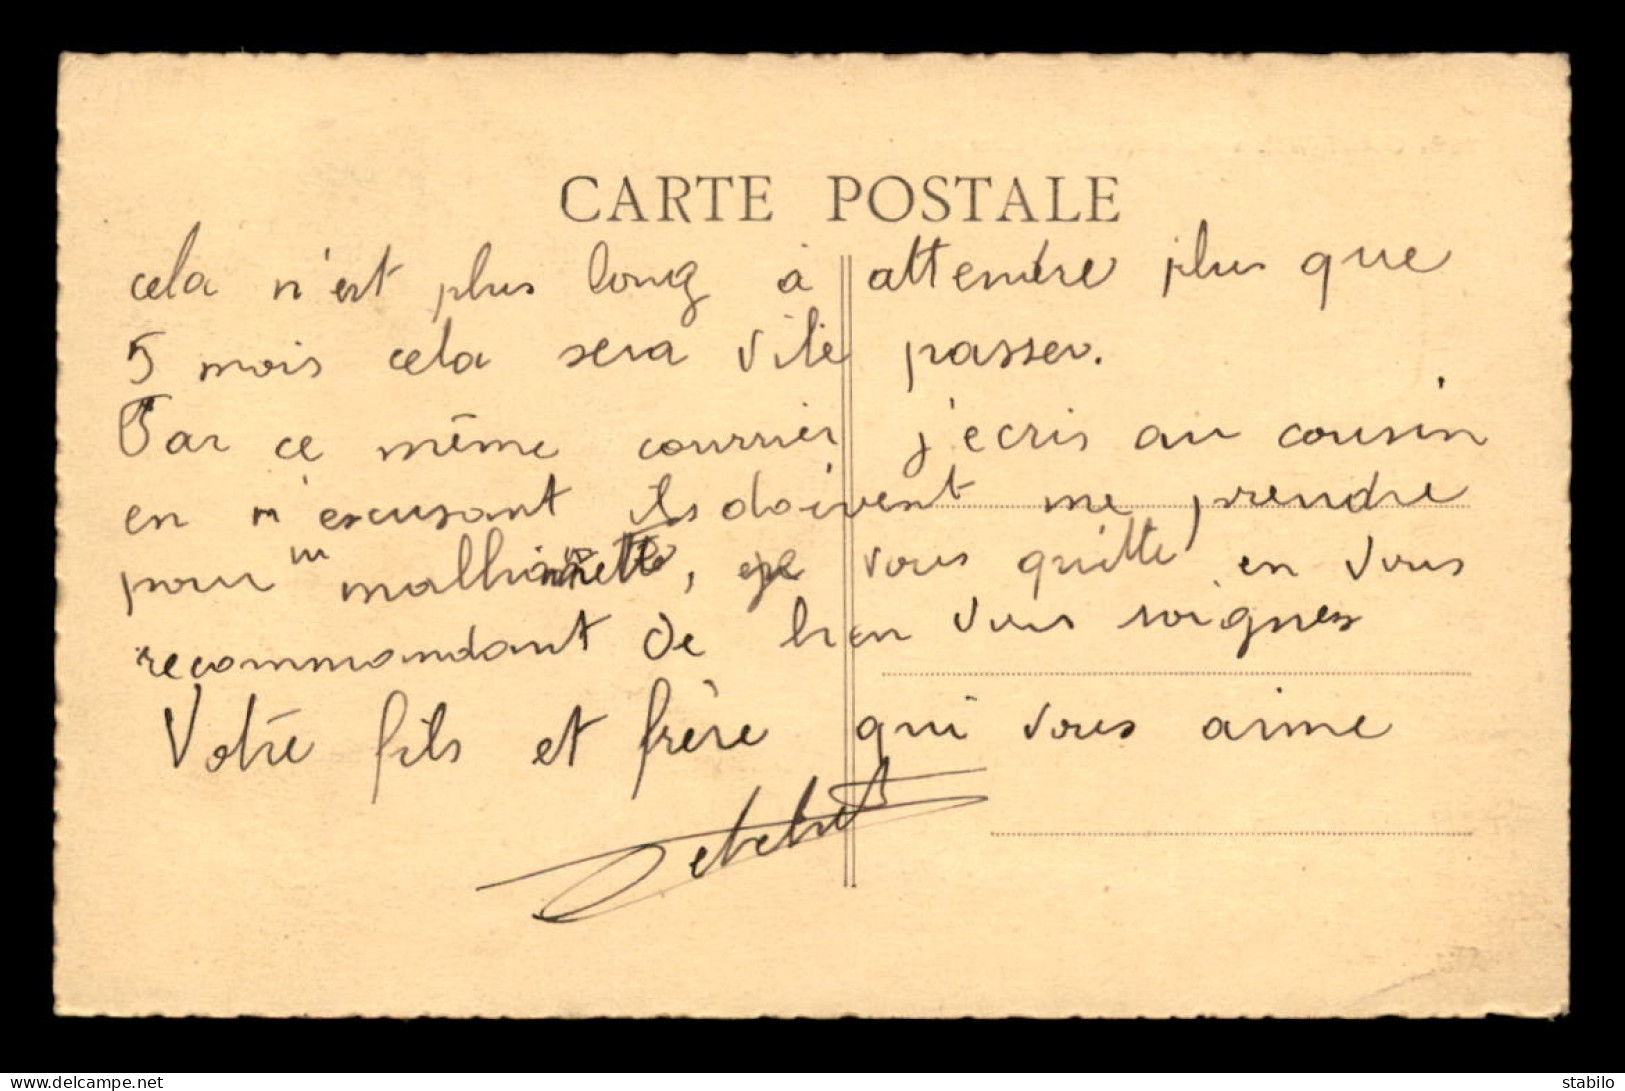 CARTE POSTALE
cela n'est plus long à attendre plus que
5 mois cela sera vite passer.
Par ce même courrier j'ecris au cousin
en m'excusant ils doivent me prendre
pour un malhonnette, je vous quitte en vous
recommandant de bien vous soignes
Votre fils et frère qui vous aime
www.delcampe.net
stabilo